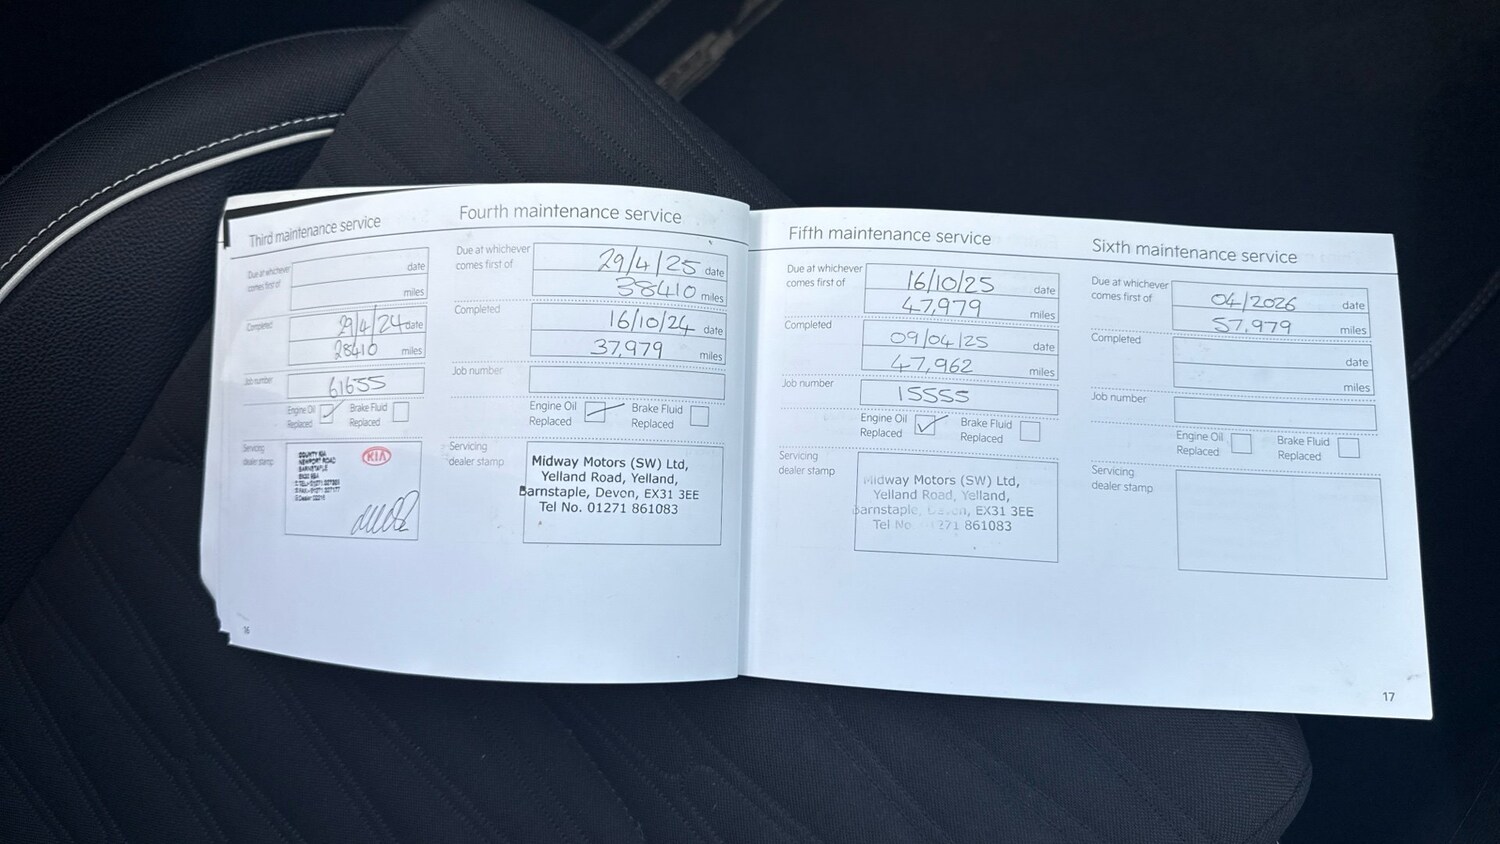 Third maintenance service
Due at whichever
comes first of
date
miles
Completed
29/4/24 date
28410 miles
Job number
61655
Engine Oil
Replaced
Brake Fluid
Replaced
Servicing
dealer stamp
COUNTY KIA
NEWPORT ROAD
BARNSTAPLE
KIA
Fourth maintenance service
Due at whichever
comes first of
29/4/25 date
38410 miles
Completed
16/10/24 date
37,979 miles
Job number
Engine Oil
Replaced
Brake Fluid
Replaced
Servicing
dealer stamp
Midway Motors (SW) Ltd,
Yelland Road, Yelland,
Barnstaple, Devon, EX31 3EE
Tel No. 01271 861083
16
Fifth maintenance service
Due at whichever
comes first of
16/10/25 date
47,979 miles
Completed
09/04/25 date
47,962 miles
Job number
15555
Engine Oil
Replaced
Brake Fluid
Replaced
Servicing
dealer stamp
Midway Motors (SW) Ltd,
Yelland Road, Yelland,
Barnstaple, Devon, EX31 3EE
Tel No 01271 861083
Sixth maintenance service
Due at whichever
comes first of
04/2026 date
57,979 miles
Completed
date
miles
Job number
Engine Oil
Replaced
Brake Fluid
Replaced
Servicing
dealer stamp
17